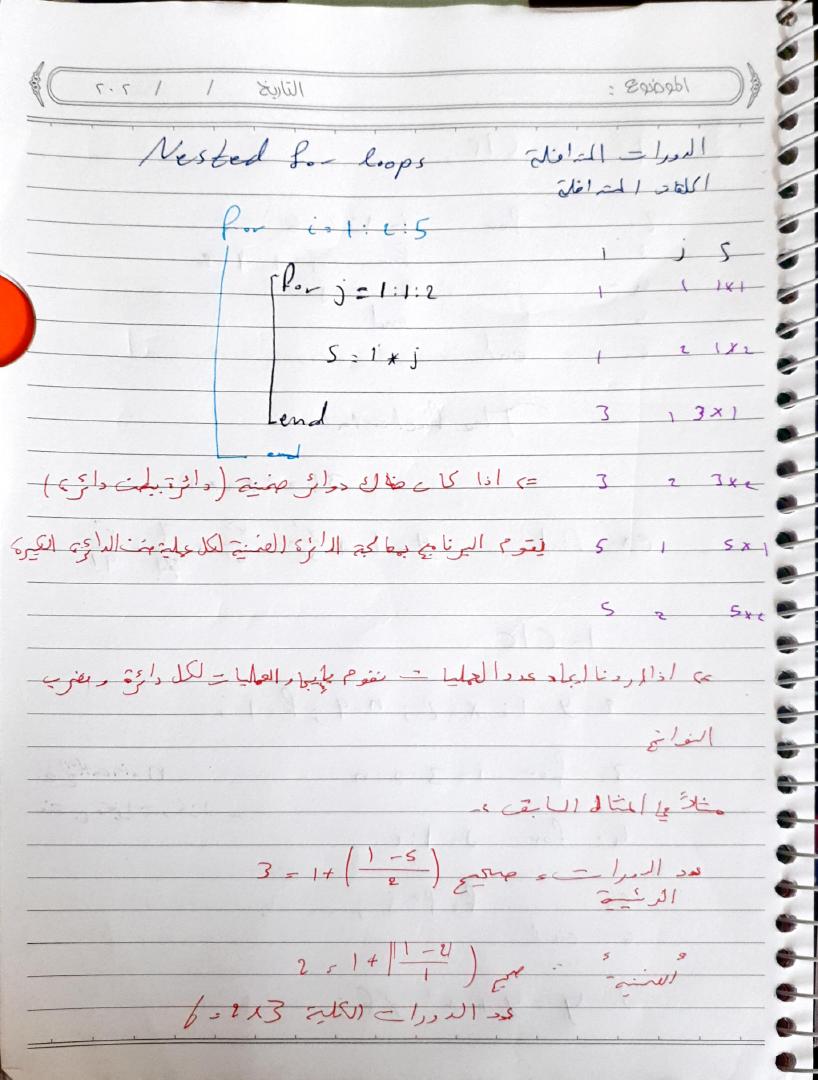 الموضوع : التاريخ / / ٢٠٢
الدورات المتداخلة Nested for loops
الحلقات المتداخلة
for i=1:2:5
i j S
for j=1:1:2 1 1 1x1
S = i * j 1 2 1x2
end 3 1 3x1
end
=> اذا كان هناك دوائر ضمنية (دائرة ببطن دائرة) 3 2 3x2
يقوم البرنامج بمعالجة الدائرة الضمنية لكل عملية ضمن الدائرة الكبيرة 5 1 5x1
5 2 5x2
اذا اردنا ايجاد عدد العمليات نقوم بإيجاد العمليات لكل دائرة ونضرب
النواتج
مثلاً في المثال السابق :-
عدد الدورات = صحيح (1-5/2) +1 = 3
الرئيسية
" الضمنية " = صحيح (1-2/1) +1 = 2
عدد الدورات الكلية 3x2=6